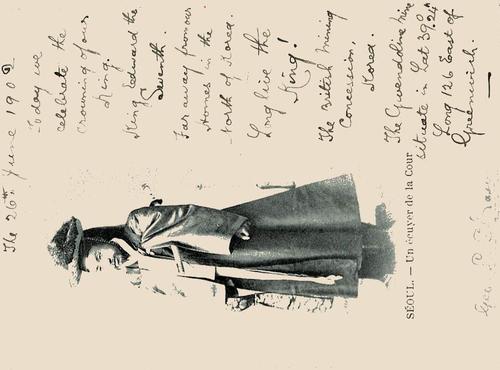 The 26th June 1902
Today we
celebrate the
Crowning of our
King.
King Edward the
Seventh.
Far away from our
Homes in the
North of Korea.
Long live the
King!
The British Mining
Concession,
Korea.
The Gwendoline Mine
situate in Lat 39°.24N
Long 126 East of
Greenwich.
SÉOUL. — Un écuyer de la Cour